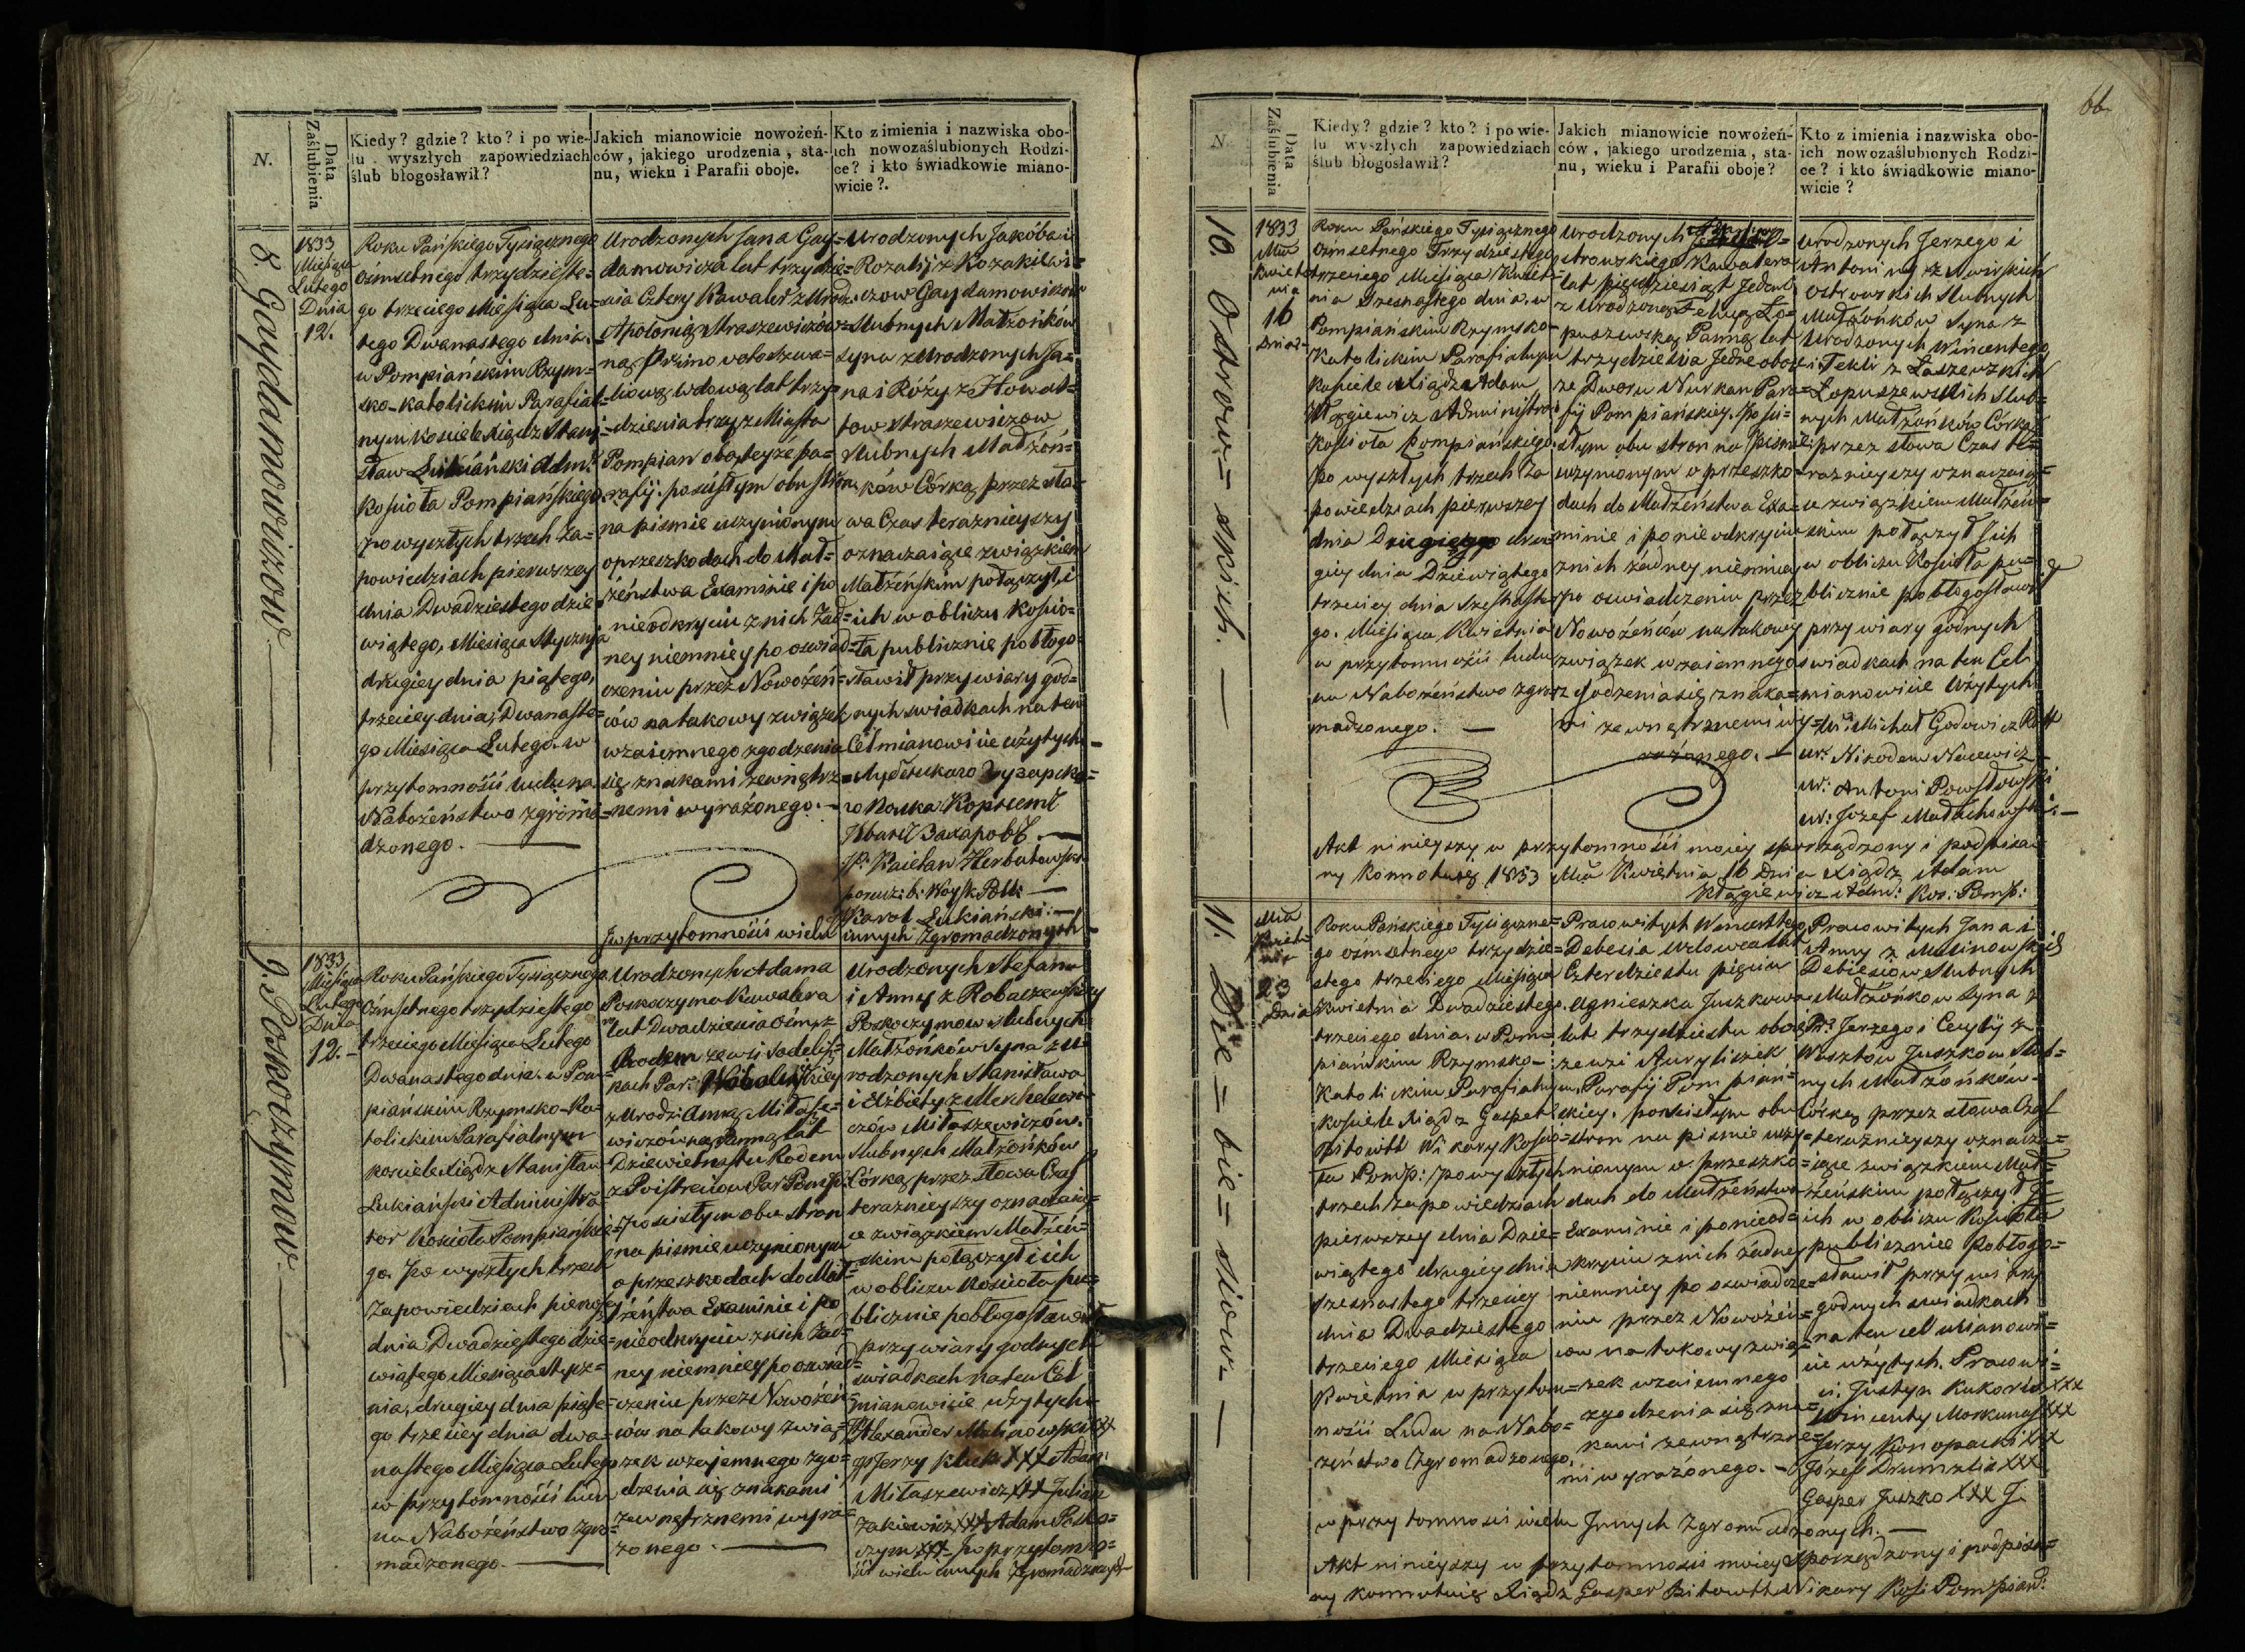 N.
Data Zaślubienia
Kiedy? gdzie? kto? i po wie-
lu wyszłych zapowiedziach
ślub błogosławił?
Jakich mianowicie nowożeń-
ców, jakiego urodzenia, sta-
nu, wieku i Parafii oboje.
Kto z imienia i nazwiska obo-
ich nowozaślubionych Rodzi-
ce? i kto świadkowie miano-
wicie?.
8. Gaydamowiczow
1833
Miesiąca
Lutego
Dnia
12.
Roku Pańskiego Tysiącznego
osmsetnego trzydzieste=
go trzeciego Miesiąca Lu=
tego Dwanastego dnia.
w Pompiańskim Rzym=
sko-katolickim Parafial=
nym kościele Xiądz Stani=
sław Lukiański Adm:
kościoła Pompiańskiego
po wyszłych trzech Za=
powiedziach pierwszey
dnia Dwadziestego dzie
wiątego, Miesiąca Stycznia
drugiey dnia piątego,
trzeciey dnia, Dwanaste=
go Miesiąca Lutego. w
przytomności ludu na
Nabożeństwo zgroma=
dzonego.
Urodzonych Jana Gay=
damowicza lat trzydzie=
scia Cztery Kawaler z Urodz:
Apolonią Straszewiczów=
ną Primo voto
=wdową lat trzy=
dziescia trzy z Miasta
Pompian oboje teyże pa=
rafij. po ścisłym obu stron
na pismie uczynionym
o przeszkodach do Mał=
żeństwa Examinie i po
nieodkryciu z nich żad=
ney niemniey po oswiad=
czeniu przez Nowożeń=
ców na takowy związek
wzaiemnego zgodzenia
się znakami zewnątrz=
nemi wyrażonego.
Urodzonych Jakóba i
Rozalij z Kozakiewi=
czow Gaydamowiczow
slubnych Małżonków
syna z Urodzonych Ja=
na i Róży z Howat=
tow Straszewiczow
slubnych Małżon=
ków Córką przez sło=
wa Czas teraznieyszy
oznaczaiące związkiem
Małżeńskim połączył, i
ich w obliczu kościo=
ła publicznie pobłogo=
sławił przy wiary god=
nych swiadkach na ten
Cel mianowicie użytych
Иванъ Захаровъ.
Kaietan Herbutowski
porucz: b: Woysk Polk:
Karol Lukiański.
i w przytomności wielu innych Zgromadzonych
9. Poskoczymow.
1833
Miesiąca
Lutego
Dnia
12.
Roku Pańskiego Tysiącznego
Osmsetnego trzydziestego
trzeciego Miesiąca Lutego
Dwanastego dnia. w Pom=
piańskim Rzymsko-Ka=
tolickim Parafialnym
kościele Xiądz Stanisław
Lukiański Administra
tor Kościoła Pompiańskie=
go. Po wyszłych trzech
Zapowiedziach pierwszey
dnia Dwadziestego dzie=
wiątego Miesiąca Stycz=
nia, drugiey dnia piąte=
go trzeciey dnia dwa=
nastego Miesiąca Lutego
w przytomności ludu
na Nabożeństwo zgro=
madzonego.
Urodzonych Adama
Poskoczyma Kawalera
lat Dwadziescia ośm, z
Rodem ze wsi
kach Par:
z Urodz: Anną Miłasze=
wiczówną Panną lat
Dziewietnastu Rodem
z Par: Pomp:
po scisłym obu stron
na pismie uczynionym
o przeszkodach do Mał=
żeństwa Examinie i po
nieodkryciu z nich żad=
ney niemniey po oswiad=
czeniu przez Nowożeń=
ców na takowy zwią=
zek wzajemnego zgo=
dzenia się znakami
zewnętrznemi wyra=
żonego.
Urodzonych Stefana
i Anny z Robaczewskich
Poskoczymow slubnych
Małżonków syna z U=
rodzonych Stanisława
i Elżbiety z
czow Miłaszewiczów
slubnych Małżonków
Córką przez słowa Czas
teraznieyszy oznaczaią=
ce związkiem Małżeń=
skim połączył i ich
w obliczu Kościoła pu=
blicznie pobłogosławił
przy wiary godnych
swiadkach na ten Cel
mianowicie użytych.
Alexander Malinowski XXX
Jerzy Kluk XXX Adam
Miłaszewicz XXX Julian
Zakiewicz XXX Adam Posko=
czym XXX i w przytomno=
ści wielu innych Zgromadzonych
66.
N.
Data Zaślubienia
Kiedy? gdzie? kto? i po wie-
lu wyszłych zapowiedziach
ślub błogosławił?
Jakich mianowicie nowożeń-
ców, jakiego urodzenia, sta-
nu, wieku i Parafii oboje?
Kto z imienia i nazwiska obo-
ich nowozaślubionych Rodzi-
ce? i kto świadkowie miano-
wicie?
10. Ostrow=skich.
1833
Mca
Kwiet
nia
16
Dnia
Roku Pańskiego Tysiącznego
Ośmsetnego Trzydziestego
trzeciego Miesiąca Kwiet=
nia Szesnastego dnia. w
Pompiańskim Rzymsko-
Katolickim Parafialnym
Kościele Xiądz Adam
Kłągiewicz Administrator
Kościoła Pompiańskiego,
po wyszłych trzech Za
powiedziach pierwszey
dnia Drugiego dru=
giey dnia Dziewiątego
trzeciey dnia Szesnaste
go. Miesiąca Kwietnia
w przytomności ludu
na Nabożeństwo zgro
madzonego.
Urodzonych
strowskiego Kawalera
lat pięćdziesiąt Jeden
z Urodzoną Teklą Ło=
puszewską Panną lat
trzydziescia Jedne oboje
ze Dworu Nurkan Para=
fij Pompiańskiey. Po sci=
słym obu stron na pismie
uczynionym o przeszko=
dach do Małżeństwa Exa=
minie i po nieodkryciu
z nich żadney niemniey
po oswiadczeniu przez
Nowożeńców na takowy
związek wzaiemnego
zgodzenia się znaka=
mi zewnątrznemi wy=
rażonego.
Urodzonych Jerzego i
Antoniny z Swirskich
Ostrowskich slubnych
Małżonków syna z
Urodzonych Wincentego
i Tekli z Laszewskich
Łopuszewskich slub=
nych Małżonków Córką
przez słowa Czas te=
raznieyszy oznaczaią=
ce związkiem Małżeń=
skim połączył i ich
w obliczu Kościoła pu=
blicznie pobłogosławił
przy wiary godnych
swiadkach na ten Cel
mianowicie Użytych
Ur: Michał Godowicz
Ur: Nikodem Nacewicz
Ur: Antoni Powstowski
Ur: Jozef Małachowski.
Akt ninieyszy w przytomności moiey sporządzony i podpisa=
ny konnotuię 1833 Mca Kwietnia 16 Dnia Xiądz Adam
Kłągiewicz Adm: Koś: Pomp:
11. Die=bie=siow
Mca
Kwiet=
nia
23
Dnia
Roku Pańskiego Tysiączne=
go osmsetnego trzydzie=
stego trzeciego Miesiąca
Kwietnia Dwadziestego
trzeciego dnia. w Pom=
piańskim Rzymsko-
Katolickim Parafialnym
kościele Xiądz Gasper
Bitowtt Wikary Kościo=
ła Pomp: po wyszłych
trzech zapowiedziach
pierwszey dnia Dzie=
wiątego drugiey dnia
szesnastego trzeciey
dnia Dwadziestego
trzeciego Miesiąca
Kwietnia w przytom=
ności Ludu na Nabo=
żeństwo Zgromadzonego.
Pracowitych Wincentego
Debesia Wdowca lat
Czterdziestu pięciu
Agnieszka Juszkowa
lat trzydziestu oboie
ze wsi
Parafij Pompiań=
skiey. po scisłym obu
stron na pismie uczy=
nionym o przeszko=
dach do Małżeństwa
Examinie i po nieod=
kryciu z nich żadney
niemniey po oswiadcze=
niu przez Nowożeń=
cow na takowy zwią=
zek wzaiemnego
zgodzenia się zna=
kami zewnątrzne=
mi wyrażonego.
Pracowitych Jana i
Anny z Malinowskich
Debiesiow slubnych
Małżonkow syna z
Pr: Jerzego i Cecylij z
Juszkow slub=
nych Małżonków
Córką przez słowa Czas
teraznieyszy oznacza=
iące związkiem Mał=
żeńskim połączył i
ich w obliczu Kościoła
publicznie Pobłogo=
sławił przy wiary
godnych swiadkach
na ten cel mianowi=
cie użytych. Pracowi=
ci. Justyn XXX
Wincenty Morkunas XXX
Jerzy Konopacki XXX
Józef XXX
Gasper Juszko XXX i
w przytomności wielu innych Zgromadzonych.
Akt ninieyszy w przytomności moiey Sporządzony i podpisa=
ny konnotuię Xiądz Gasper Bitowtt Wikary Kości Pompiań: